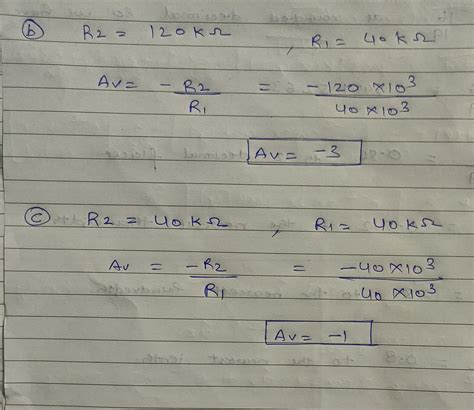 (b) R2 = 120KΩ , R1 = 40KΩ
Av = -R2/R1 = -120 ×10³/40×10³
Av = -3
(c) R2 = 40KΩ , R1 = 40KΩ
Av = -R2/R1 = -40×10³/40×10³
Av = -1